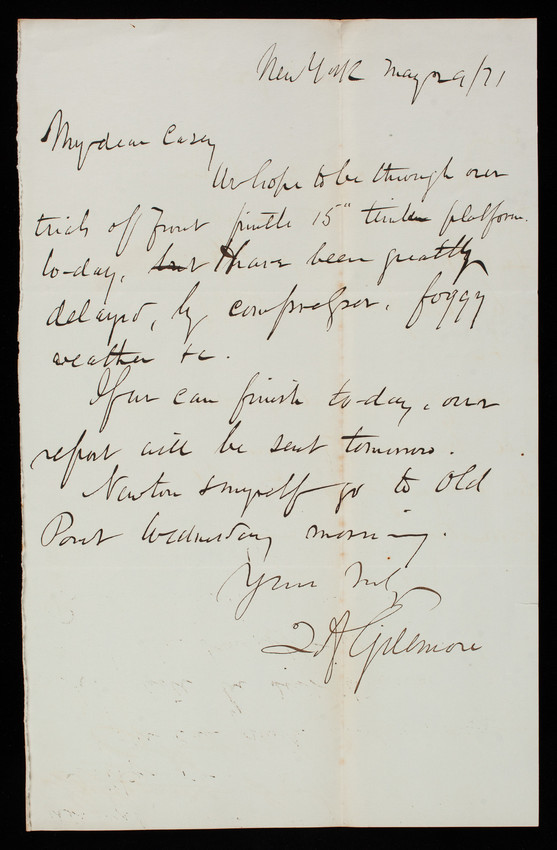 New York May 29/71
My dear Casey
We hope to be through our
trials of front pintle 15" timber platform
to-day, have been greatly
delayed, by compressor, foggy
weather &c.
If we can finish to-day, our
report will be sent tomorrow.
Newton & myself go to Old
Point Wednesday morning.
Yours truly
Q A Gillmore